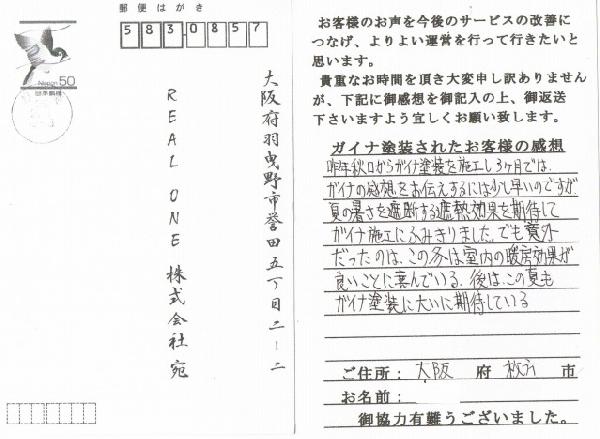 郵便はがき
583-0857
Nippon 50
日本郵便
大阪府羽曳野市誉田五丁目二ー二
REAL ONE 株式会社宛
お客様のお声を今後のサービスの改善に
つなげ、よりよい運営を行って行きたいと
思います。
貴重なお時間を頂き大変申し訳ありません
が、下記に御感想を御記入の上、御返送
下さいますよう宜しくお願い致します。
ガイナ塗装されたお客様の感想
昨年秋口からガイナ塗装を施工し3ヶ月では、
ガイナの感想をお伝えするには少し早いのですが
夏の暑さを遮断する遮熱効果を期待して
ガイナ施工にふみきりました。でも意外
だったのは、この冬は室内の暖房効果が
良いことに喜んでいる。後は、この夏も
ガイナ塗装に大いに期待している
ご住所： 大阪 府 枚方 市
お名前：
御協力有難うございました。